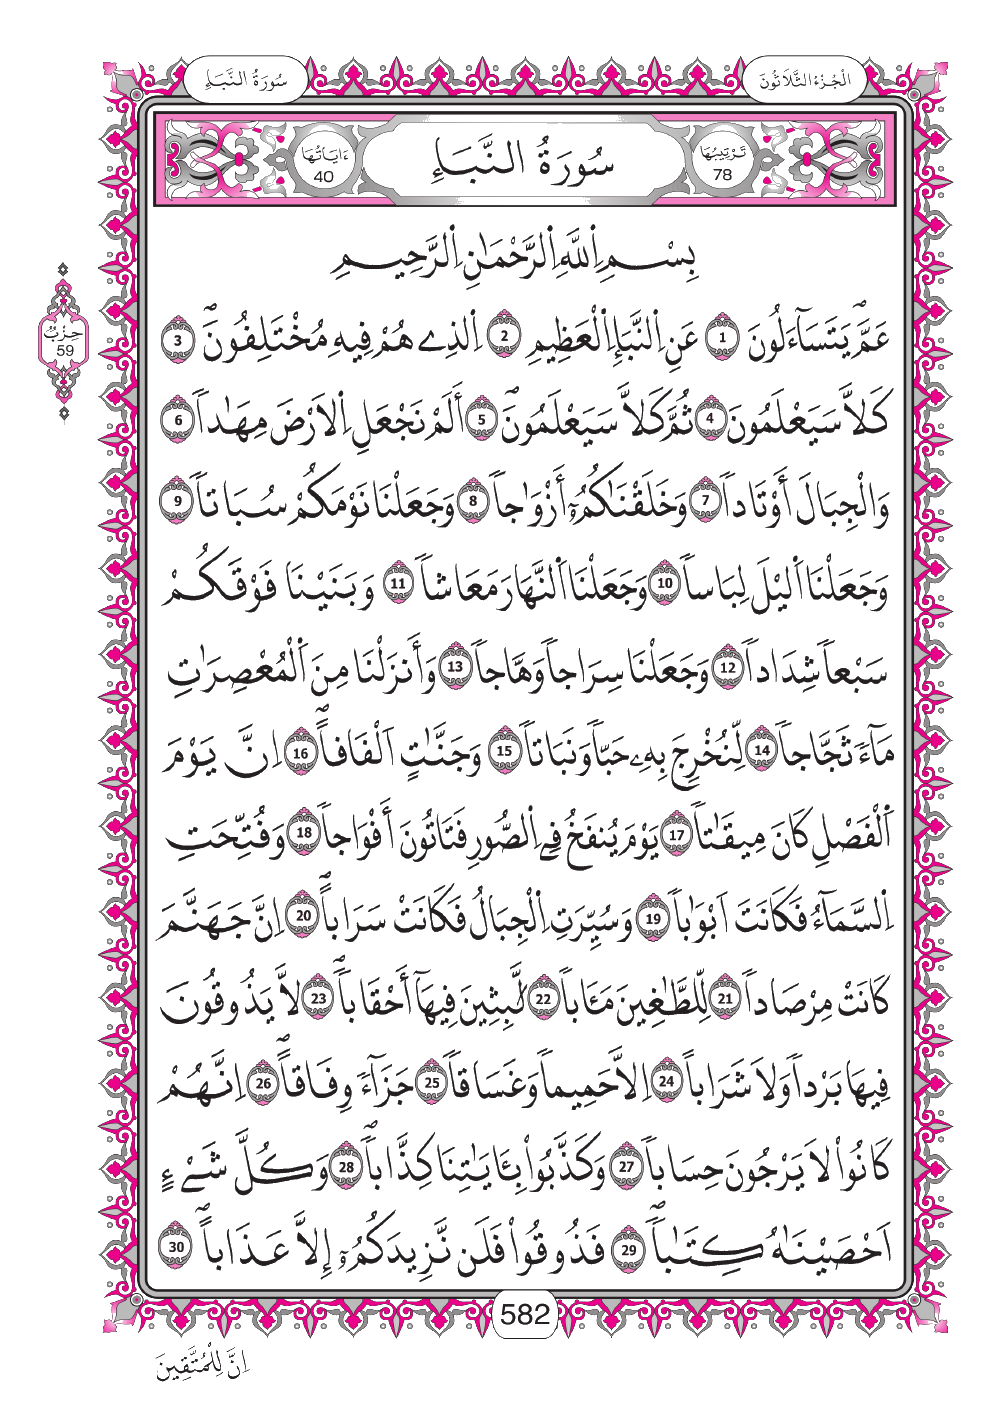 الْجُزْءُ الثَّلَاثُونَ
سُورَةُ النَّبَإِ
تَرْتِيبُهَا
78
سُورَةُ النَّبَإِ
ءَايَاتُهَا
40
بِسْمِ اِ۬للَّهِ اِ۬لرَّحْمَٰنِ اِ۬لرَّحِيمِ
عَمَّ يَتَسَآءَلُونَ 1 عَنِ اِ۬لنَّبَإِ اِ۬لْعَظِيمِ 2 اِ۬لذِے هُمْ فِيهِ مُخْتَلِفُونَۖ 3
حِزْبٌ
59
كَلاَّ سَيَعْلَمُونَ 4 ثُمَّ كَلاَّ سَيَعْلَمُونَۖ 5 أَلَمْ نَجْعَلِ اِ۬لَارْضَ مِهَٰداٗ 6
وَالْجِبَالَ أَوْتَاداٗ 7 وَخَلَقْنَٰكُمُۥٓ أَزْوَٰجاٗ 8 وَجَعَلْنَا نَوْمَكُمْ سُبَاتاٗ 9
وَجَعَلْنَا اَ۬ليْلَ لِبَاساٗ 10 وَجَعَلْنَا اَ۬لنَّهَارَ مَعَاشاٗ 11 وَبَنَيْنَا فَوْقَكُمْ
سَبْعاٗ شِدَاداٗ 12 وَجَعَلْنَا سِرَاجاٗ وَهَّاجاٗ 13 وَأَنزَلْنَا مِنَ اَ۬لْمُعْصِرَٰتِ
مَآءٗ ثَجَّاجاٗ 14 لِّنُخْرِجَ بِهِۦ حَبّاٗ وَنَبَاتاٗ 15 وَجَنَّٰتٍ اَلْفَافاًۖ 16 اِنَّ يَوْمَ
اَ۬لْفَصْلِ كَانَ مِيقَٰتاٗ 17 يَوْمَ يُنفَخُ فِے اِ۬لصُّورِ فَتَاتُونَ أَفْوَاجاٗ 18 وَفُتِّحَتِ
اِ۬لسَّمَآءُ فَكَانَتَ اَبْوَٰباٗ 19 وَسُيِّرَتِ اِ۬لْجِبَالُ فَكَانَتْ سَرَاباًۖ 20 اِنَّ جَهَنَّمَ
كَانَتْ مِرْصَاداٗ 21 لِّلطَّٰغِينَ مَـَٔاباٗ 22 لَّٰبِثِينَ فِيهَآ أَحْقَاباٗۖ 23 لاَّ يَذُوقُونَ
فِيهَا بَرْداٗ وَلَا شَرَاباً 24 اِلاَّ حَمِيماٗ وَغَسَاقاٗ 25 جَزَآءٗ وِفَاقاًۖ 26 اِنَّهُمْ
كَانُواْ لَا يَرْجُونَ حِسَاباٗ 27 وَكَذَّبُواْ بِـَٔايَٰتِنَا كِذَّاباٗۖ 28 وَكُلَّ شَےْءٍ
اَحْصَيْنَٰهُ كِتَٰباٗۖ 29 فَذُوقُواْ فَلَن نَّزِيدَكُمُۥٓ إِلاَّ عَذَاباًۖ 30
582
اِنَّ لِلْمُتَّقِينَ